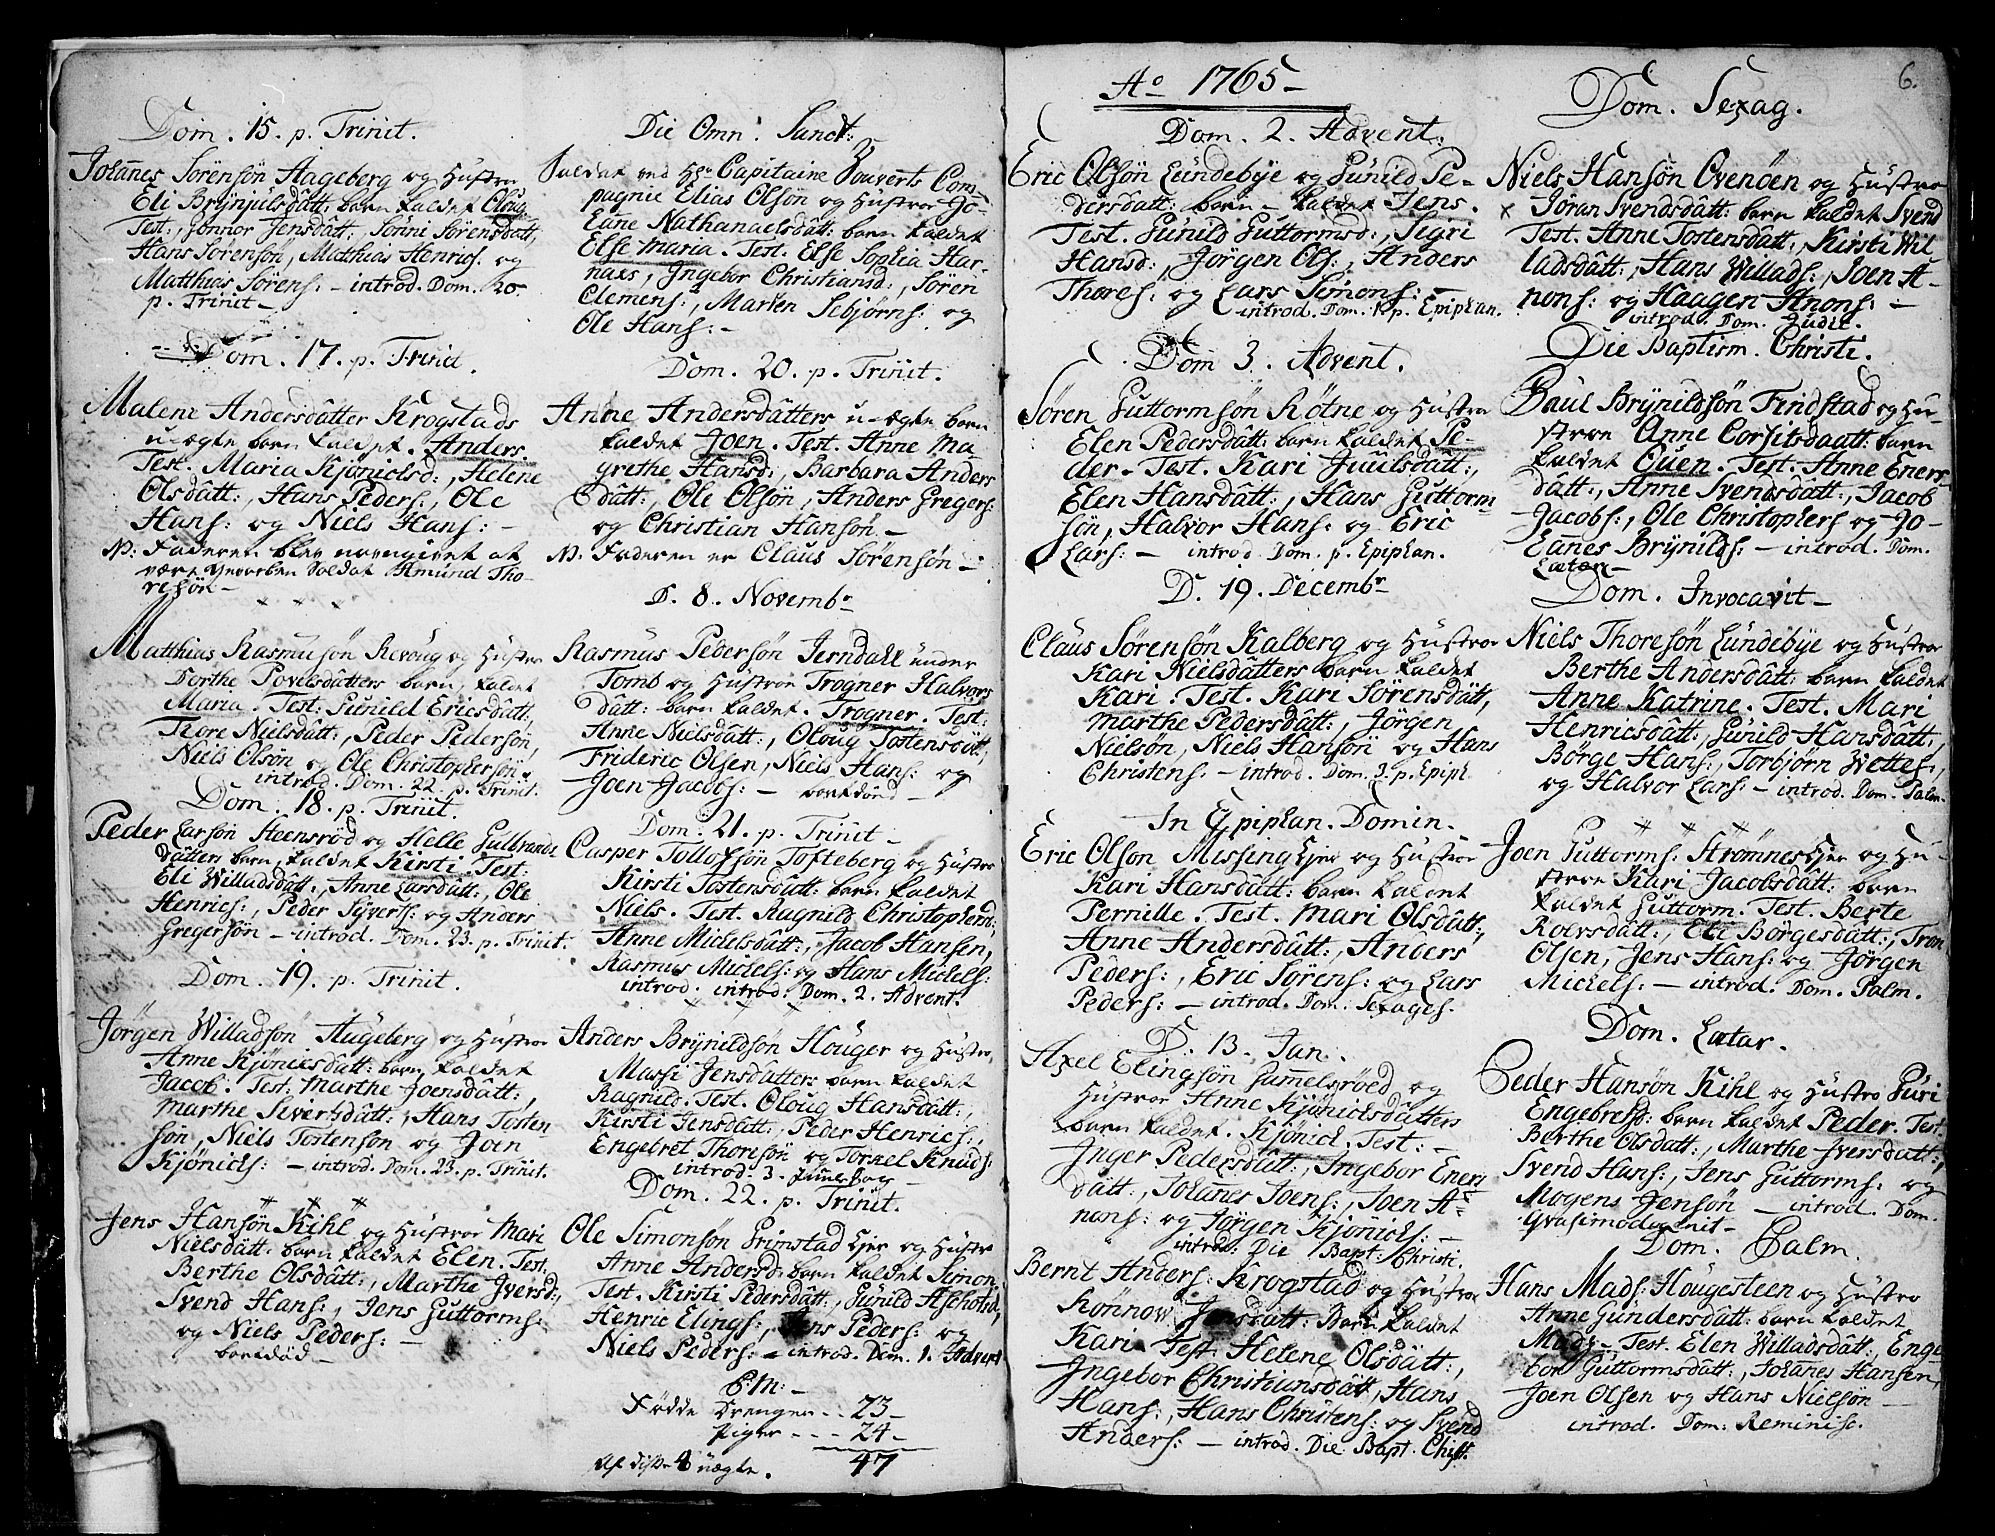 Dom. 15. p. Trinit.
Johannes Sörensön Hageberg og Hustro
Eli Brynjulsdått: barn kaldet Oloug
Test: Jönnor Jensdått:, Sönni Sörensdått,
Hans Sörensön, Matthis Henrics: og
Matthis Sörens: – introd. Dom. 20.
p. Trinit –
Dom. 17. p. Trinit.
Malene Andersdåtter Krogstads
u-ægte barn kaldet Anders.
Test. Maria Kjönichsd:, Helene
Olsdått:, Hans Peders:, Ole
Hans: og Niels Hans: –
N: Faderen blev navngivet at
være geworben Soldat Amund Tho-
resön –
Matthias Rasmusön Revoug og Hustro
Dorthe Povelsdåtters barn kaldet
Maria. Test: Gunild Ericsdått:,
Thore Nielsdått:, Peder Pedersön,
Niels Olsön og Ole Christophersön
introd. Dom. 22. p. Trinit.
Dom. 18. p. Trinit.
Peder Larsön Steensröd og Helle Gulbrands
dåtters barn kaldet Kirsti. Test:
Eli Willadsdått:, Anne Larsdått:, Ole
Henrics:, Peder Syvers: og Anders
Gregersön – introd. Dom. 23. p. Trinit.
Dom. 19. p. Trinit.
Jörgen Willadsön Hugeberg og Hustro
Anne Kjönicksdått: barn kaldet
Jacob. Test. Marthe Joensdått:,
Marthe Sivertsdått:, Hans Tosten-
sön, Niels Tostensön og Joen
Kjönichs: – introd. Dom. 23. p. Trinit.
Jens Hansön Kihl og Hustroe Mari
Nielsdått: barn kaldet Elen. Test.
Berthe Olsdått:, Marthe Iversd:,
Svend Hans:, Jens Guttorms:
og Niels Peders: –
bortdöd –
Die Omn: Sanct:
Soldat ved Hr Capitaine Com-
pagnie Elias Olsön og Hustroe Jo-
hane Nathanaelsdått: barn kaldet
Else Maria. Test. Else Sophia Har-
naes, Ingebor Christiansd:, Sören
Clemens:, Marten Sebjörns: og
Ole Hans: –
Dom. 20. p. Trinit.
Anne Andersdåtters u-ægte barn
kaldet Joen. Test. Anne Ma
grethe Hansd:, Barbara Anders
dått: Ole Olsön, Anders Gregers:
og Christian Hansön –
N: Faderen er Claus Sörensön –
D. 8. Novembr
Rasmus Pedersön Jerndall under
Tomb og Hustroe Trogner Halvors
dått: barn kaldet. Trogner. Test:
Anne Nielsdått:, Oloug Tostensdått,
Frideric Olsen, Niels Hans: og
Joen Jacobs: – bortdöd –
Dom. 21. p. Trinit –
Casper Tollofsön Tofteberg og Hustroe
Kirsti Tostensdått: barn kaldet
Niels. Test. Ragnild Christophersd:
Anne Michelsdått:, Jacob Hansen,
Rasmus Michels: og Hans Michels:
introd. introd: Dom. 2. Advent.
Anders Brynildsön Houger og Hustro,
Massi Jensdåtters barn kaldet
Ragnild. Test. Oloug Hansdått:,
Kirsti Jensdått:, Peder Henrics:,
Engebret Thoresön og Torkel Knuds:
introd. 3. Juule Dag
Dom. 22. p. Trinit.
Ole Simonsön Grimstad Ejer og Hustro
Anne Andersd: barn kaldet Simon
Test. Kirsti Pedersdått:, Gunild Ascholsd,
Henric Elings:, Jens Peders: og
Niels Peders: – introd. Dom. 1. Advent
S: M: –
Födde Drenge - - 23 –
Piger - - - 24 –
Af disse 4 uægte. 47
6.
Ao 1765 –
Dom. 2. Advent:
Eric Olsön Lundebye og Gunild Pe-
dersdått: barn – kaldet Jens.
Test. Gunild Guttormsd:, Sigri
Hansd:, Jörgen Ols:, Anders
Thores: og Lars Simons: –
introd. Dom. 1. p. Epiphan.
Dom 3. Advent.
Sören Guttormsön Rötne og Hustro
Elen Pedersdått: barn kaldet Pe-
der. Test. Kari Juulsdått:,
Elen Hansdått:, Hans Guttorm
sön, Halvor Hans: og Eric
Lars: – introd. Dom. p. Epiphan.
D. 19. Decembr
Claus Sörensön Kalberg og Hustroe
Kari Nielsdåtters barn kaldet
Kari. Test. Kari Sörensdått,
Marthe Pedersdått:, Jörgen
Nielsön, Niels Hansön og Hans
Christens: – introd. Dom. 3. p. Epiph.
In Epiphan. Domin.
Eric Olson Missing Ejer og Hustroe
Kari Hansdått: barn kaldet
Pernille. Test. Mari Olsdått:,
Anne Andersdått:, Anders
Peders:, Eric Sörens: og Lars
Peders: – introd. Dom: Sexages.
D. 13. Jan.
Axel Elingsön Gamelsröed og
Hustroe Anne Kjönichsdåtters
barn kaldet. Kjönich. Test: –
Inger Pedersdått:, Ingebor Ener
dått:, Johanes Joens:, Joen A=
nons: og Jörgen Kjönichs: –
introd: Die Bapt: Christi.
Bernt Anders: Krogstad og Hustroe
Rönnow Jensdått: Barn kaldet
Kari. Test. Helene Olsdått:,
Ingebor Christiansdått, Hans
Hans:, Hans Christens: og Svend
Anders: – introd. Die Bapt. Chist.
Dom. Sexag.
Niels Hansön Ovenöen og Hustroe
x Joran Svendsdått: barn kaldet Svend
Test. Anne Tostensdått:, Kirsti Wil
ladsdått:, Hans Willads:, Joen A-
nons: og Haagen Anons: –
introd. Dom. Judic.
Die Baptism. Christi.
Paul Brynildsön Findstad og Hu-
stroe Anne Corfitsdaatt: barn
kaldet Ouen. Test. Anne Eners-
dått:, Anne Svendsdått:, Jacob
Jacobs:, Ole Christophers og Jo-
hannes Brynilds: – introd. Dom.
Lætare –
Dom. Invocavit –
Niels Thoresön Lundebye og Hustroe
Berthe Andersdått: barn kaldet
Anne Katrine. Test. Mari
Henricsdått:, Gunild Hansdått:,
Börge Hans:, Torbjörn Wettes:,
og Halvor Lars: – introd. Dom. Palm.
Joen Guttorms: Strömnes Ejer og Hu-
stroe Kari Jacobsdått: barn
kaldet Guttorm. Test. Berte
Roersdått:, Eli Börgesdått:, Tron
Olsen, Jens Hans: og Jörgen
Michels: – introd. Dom. Palm.
Dom. Lætar.
Peder Hansön Kihl og Hustro Guri
Engebretsd: barn kaldet Peder. Test.
Berthe Olsdått:, Marthe Iversdått:,
Svend Hans:, Jens Guttorms: og
Mogens Jensön – introd. Dom.
Qvasimodogenit –
Dom. Palm.
Hans Mads: Hougesteen og Hustro
Anne Gundersdått: barn kaldet
Mads – Test. Elen Willadsdått:, Enge
bor Guttormsdått:, Johanes Hansen,
Joen Olsen og Hans Nielsön –
introd. Dom: Reminisc.